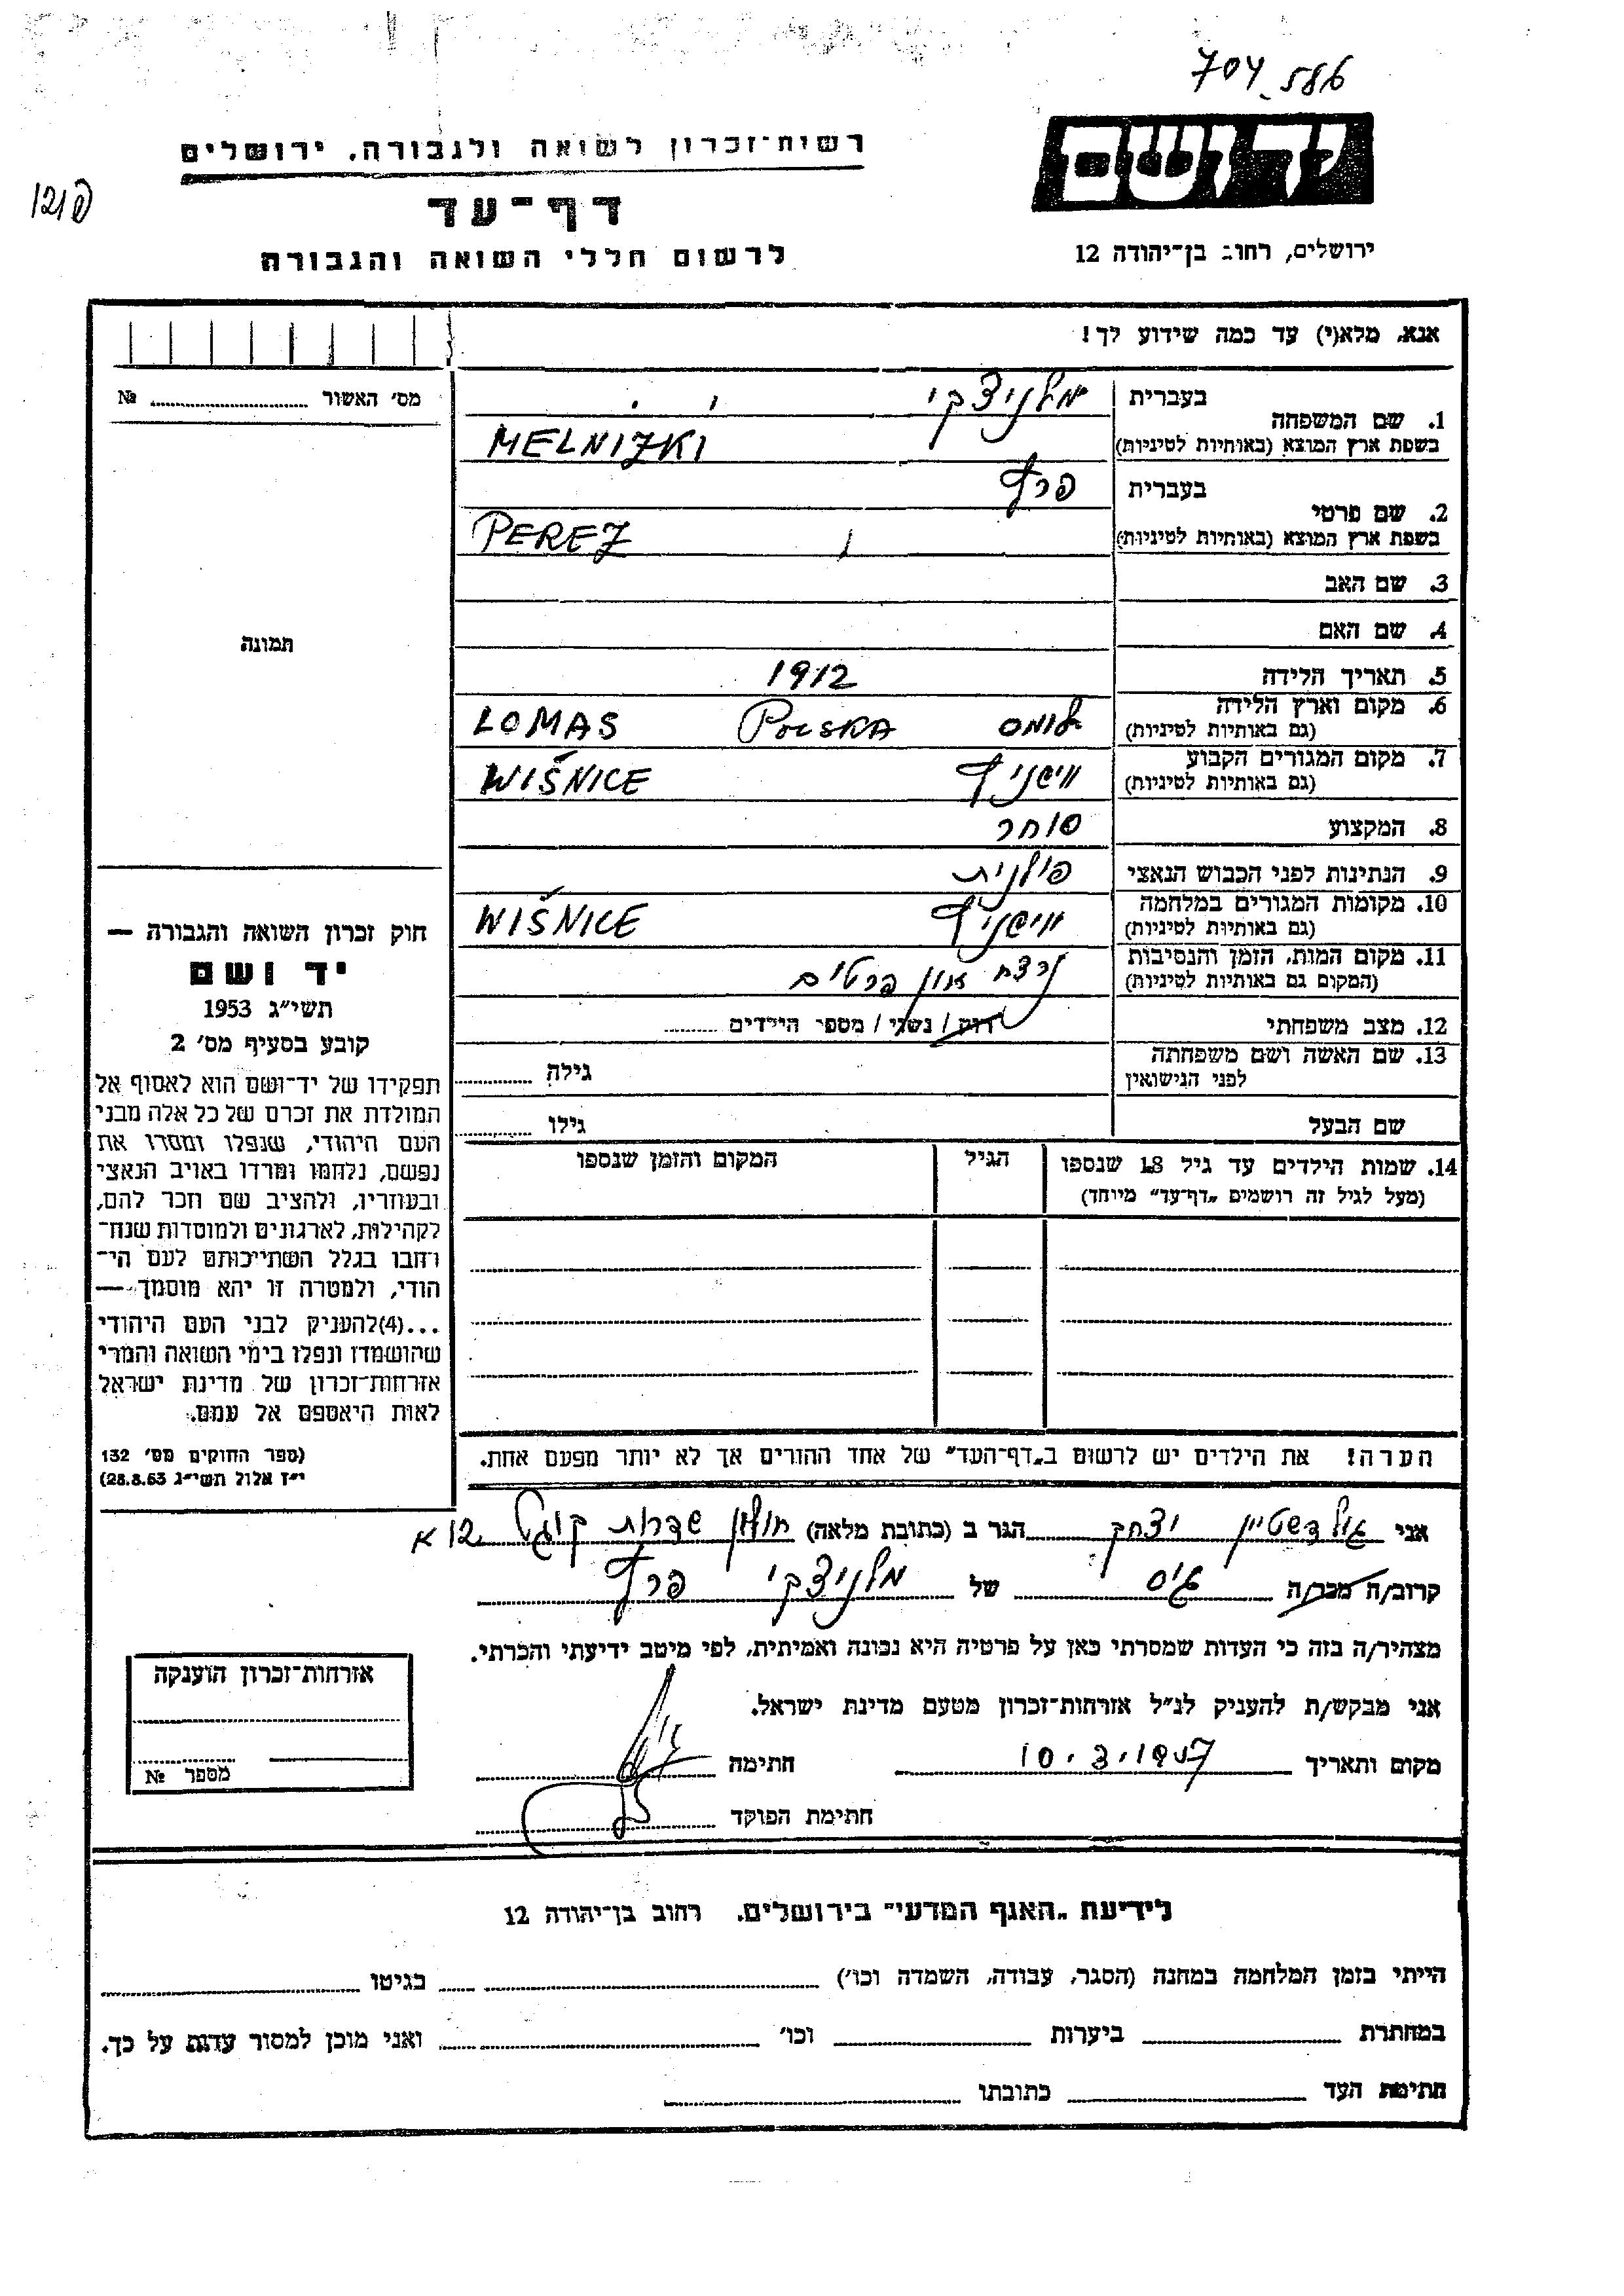 704_586
רשות־זכרון לשואה ולגבורה. ירושלים
ידושם
דף־עד
לרשום חללי השואה והגבורה
ירושלים, רחוב בן־יהודה 12
אנא, מלא(י) עד כמה שידוע לך!
מס׳ האשור № 
1. שם המשפחה בעברית מלניצקי
בשפת ארץ המוצא (באותיות לטיניות) MELNIZKI
2. שם פרטי בעברית פרץ
בשפת ארץ המוצא (באותיות לטיניות) PEREZ
3. שם האב
4. שם האם
תמונה
5. תאריך הלידה 1912
6. מקום וארץ הלידה (גם באותיות לטיניות) לומס POLSKA LOMAS
7. מקום המגורים הקבוע (גם באותיות לטיניות) ווישניץ WIŚNICE
8. המקצוע סוחר
9. הנתינות לפני הכבוש הנאצי פולנית
10. מקומות המגורים במלחמה (גם באותיות לטיניות) ווישניץ WIŚNICE
11. מקום המות, הזמן והנסיבות (המקום גם באותיות לטיניות) נרצח אין פרטים
12. מצב משפחתי רוק/ נשוי / מספר הילדים
13. שם האשה ושם משפחתה לפני הנישואין גילה
שם הבעל גילו
14. שמות הילדים עד גיל 18 שנספו הגיל המקום והזמן שנספו
(מעל לגיל זה רושמים „דף־עד״ מיוחד)
חוק זכרון השואה והגבורה —
יד ושם
תשי״ג 1953
קובע בסעיף מס׳ 2
תפקידו של יד־ושם הוא לאסוף אל
המולדת את זכרם של כל אלה מבני
העם היהודי, שנפלו ומסרו את
נפשם, נלחמו ומרדו באויב הנאצי
ובעוזריו, ולהציב שם וזכר להם,
לקהילות, לארגונים ולמוסדות שנח־
רחבו בגלל השתייכותם לעם הי־
הודי, ולמטרה זו יהא מוסמך —
...(4)להעניק לבני העם היהודי
שהושמדו ונפלו בימי השואה והמרי
אזרחות־זכרון של מדינת ישראל
לאות היאספם אל עמם.
(ספר החוקים מס׳ 132
י״ז אלול תשי״ג 28.8.53)
הערה! את הילדים יש לרשום ב„דף־העד״ של אחד ההורים אך לא יותר מפעם אחת.
אני גולדשטיין יצחק הגר ב (כתובת מלאה) חולון שדרות קוגל 12 א
קרוב/ה מכר/ה גיס של מלניצקי פרץ
מצהיר/ה בזה כי העדות שמסרתי כאן על פרטיה היא נכונה ואמיתית, לפי מיטב ידיעתי והכרתי.
אני מבקש/ת להעניק לנ״ל אזרחות־זכרון מטעם מדינת ישראל.
מקום ותאריך 10.3.1957 חתימה
חתימת הפוקד
אזרחות־זכרון הוענקה
מספר №
לידיעת „האגף המדעי״ בירושלים. רחוב בן־יהודה 12
הייתי בזמן המלחמה במחנה (הסגר, עבודה, השמדה וכו׳) בגיטו
במחתרת ביערות וכו׳ ואני מוכן למסור עדות על כך.
חתימת העד כתובתו